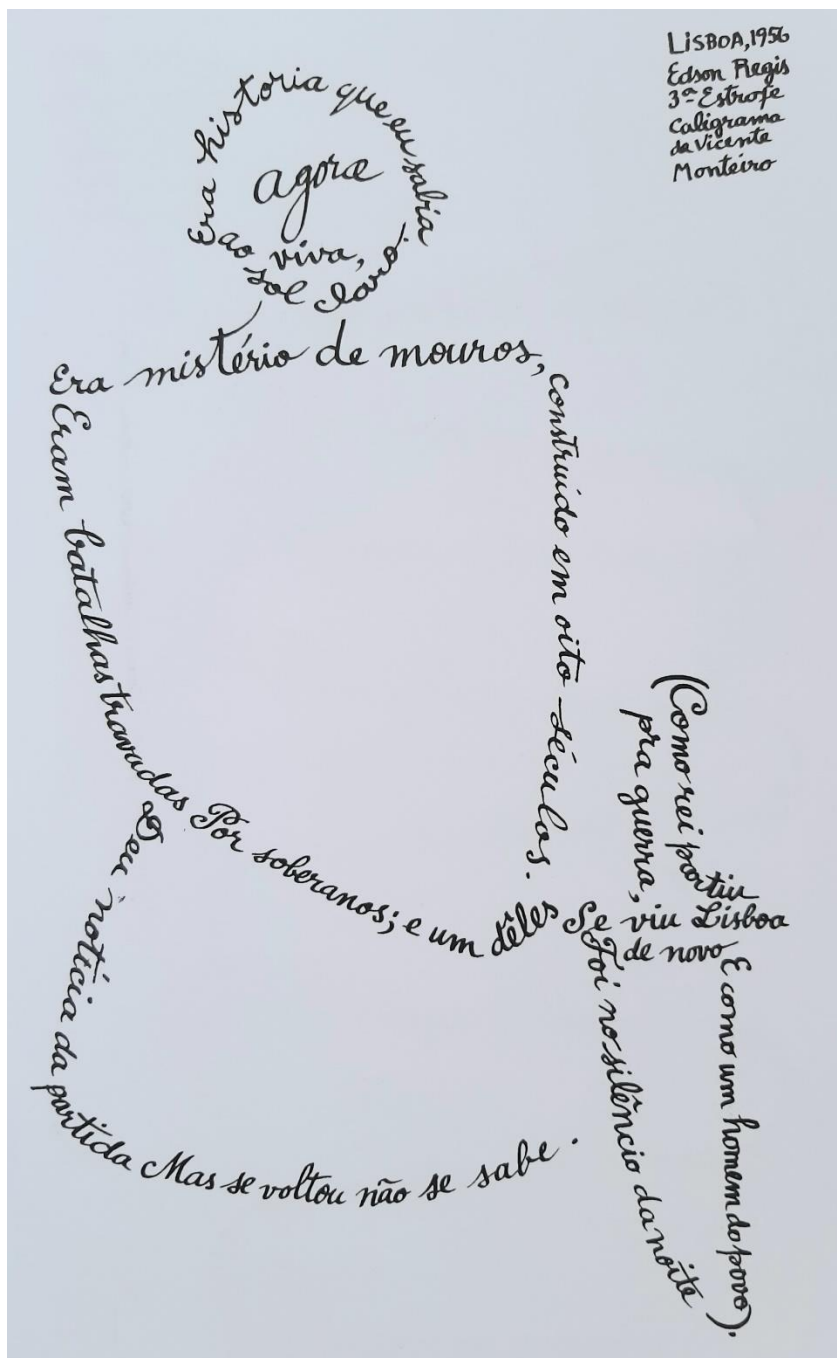 LISBOA, 1956
Edson Regis
3ª Estrofe
Caligrama
de Vicente
Monteiro
Era historia que eu sabia
agora
viva,
ao sol claro.
Era mistério de mouros,
construido em oito séculos.
Eram batalhas travadas
Por soberanos; e um dêles
Deu notícia da partida
Mas se voltou não se sabe.
(Como rei partiu
pra guerra,
Se viu Lisboa
de novo
Foi no silêncio da noite
E como um homem do povo).